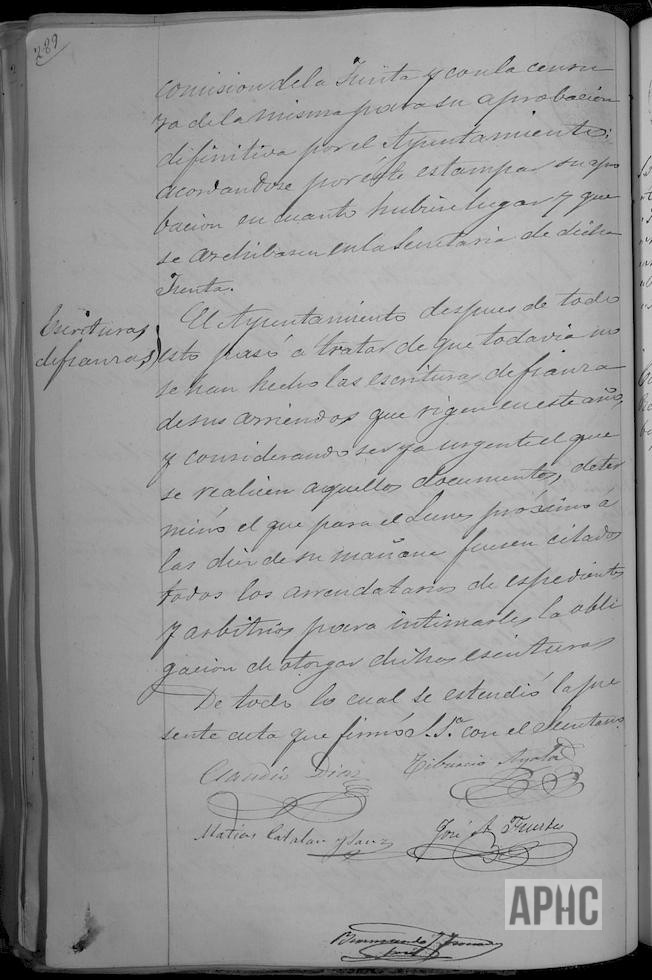 289
comision de la Junta y con la censu
ra de la misma para su aprobacion
difinitiva por el Ayuntamiento;
acordandose por éste estampar su apro
bacion en cuanto hubiere lugar y que
se archibasen en la Secretaria de dicha
Junta.
Escrituras
de fianzas
El Ayuntamiento despues de todo
esto pasó a tratar de que todavia no
se han hecho las escrituras de fianza
de sus arriendos que rigen en este año,
y considerando ser ya urgente el que
se realicen aquellos documentos, deter
minó el que para el Lunes próximo á
las diez de su mañana fuesen citados
todos los arrendatarios de espedientes
y arbitrios para intimarles la obli
gacion de otorgar dichas escrituras
De todo lo cual se estendió la pre
sente acta que firmó S.Sª con el Secretario.
Claudio Diaz
Tiburcio Ayala
Matias Catalan y Sanz
José A. Fuertes
APHC